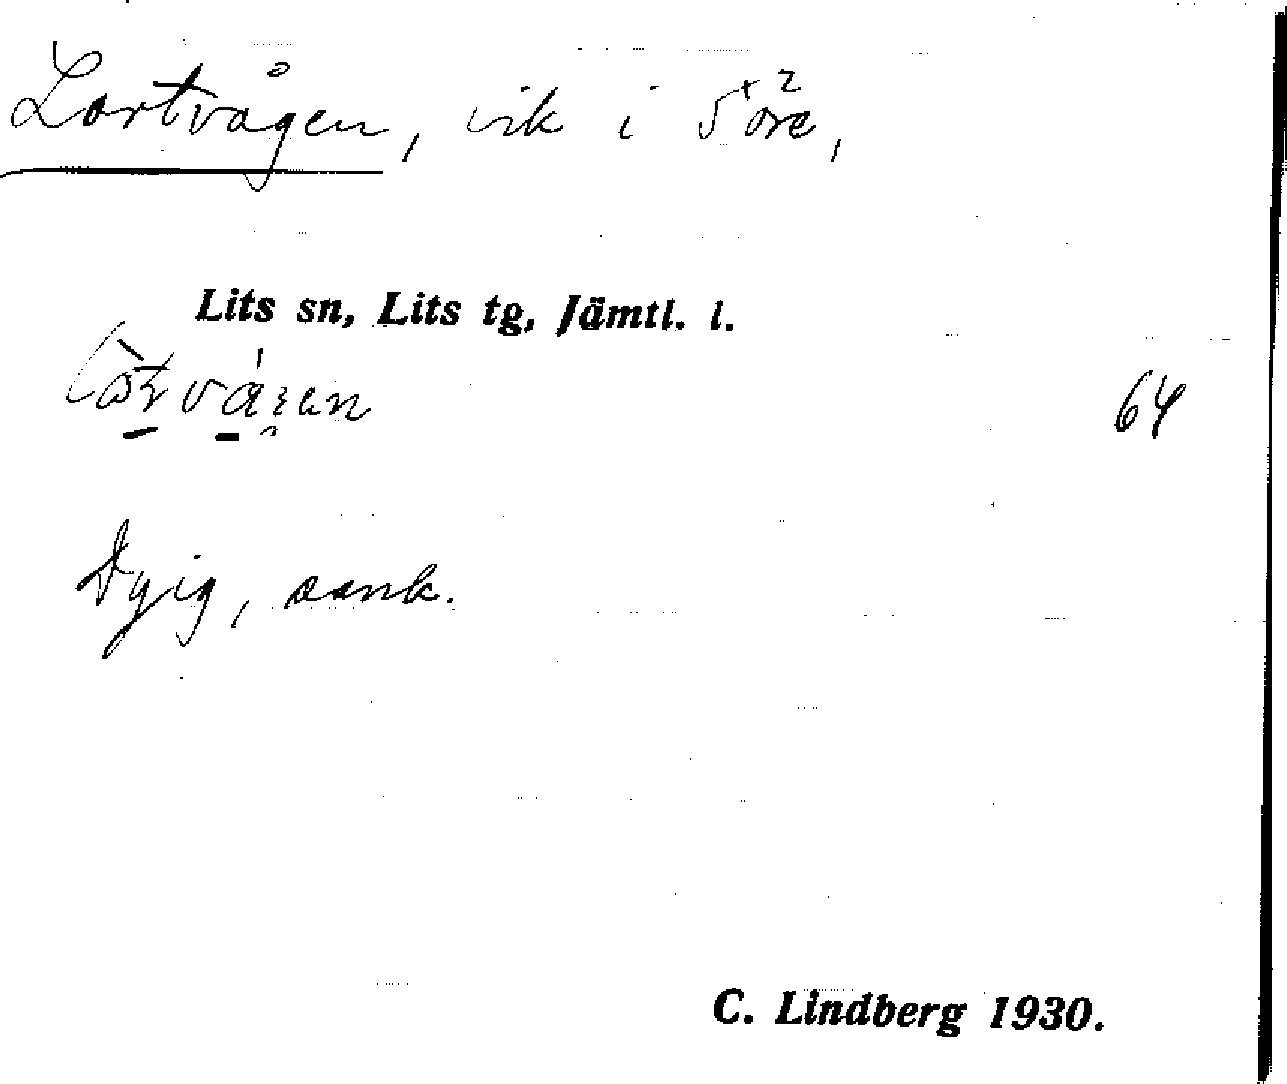 Lortvågen, vik i
Lits sn, Lits tg, Jämtl. l.
64
Dyig, sank.
C. Lindberg 1930.